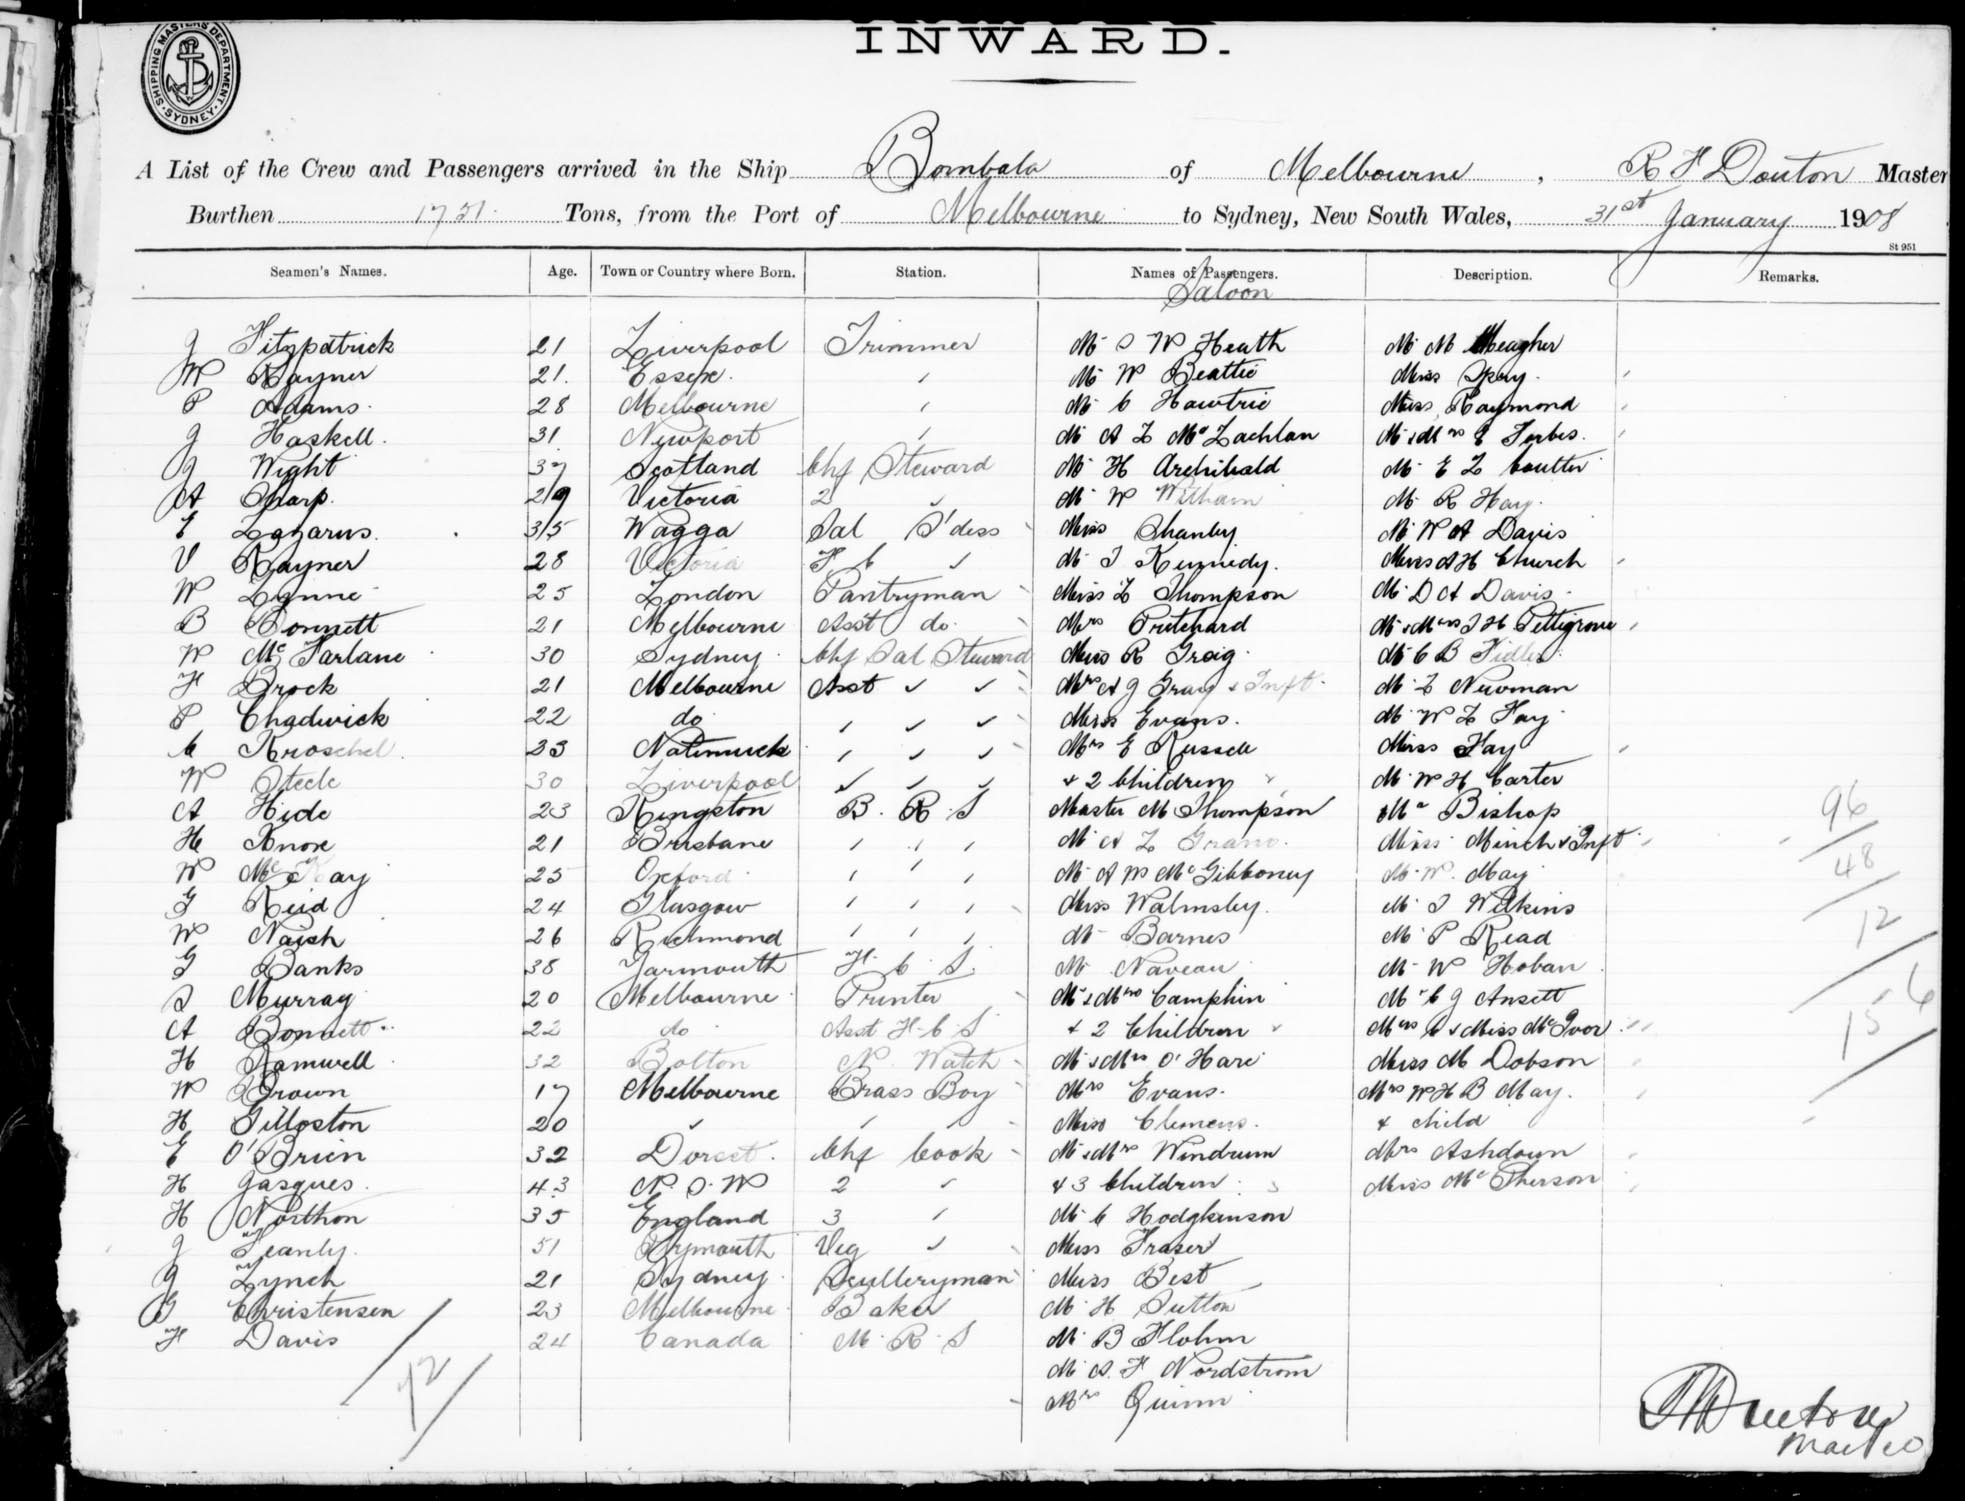 INWARD.
SHIPPING MASTERS DEPARTMENT. SYDNEY
A List of the Crew and Passengers arrived in the Ship Bombala of Melbourne, R F Douton Master
Burthen 1751 Tons, from the Port of Melbourne to Sydney, New South Wales, 31st January 1908
St 951
Seamen's Names. Age. Town or Country where Born. Station. Names of Passengers. Description. Remarks.
Saloon
J Fitzpatrick 21 Liverpool Trimmer Mr S W Heath Mr M Meagher
W Rayner 21. Essex. Mr W Beattie Miss
P Adams. 28 Melbourne Mr C Hawtrie Miss Raymond
J Haskell. 31 Newport Mr A L McLachlan Mr & Mrs E Forbes.
J Wight 37 Scotland Chf Steward Mr H Archibald Mr E L Coulter
A Sharp. 29 Victoria 2 ✓ Mr W Witham Mr R Hay.
E Lazarus. 35 Wagga Sal S'dess Miss Shanley Mr W A Davis
V Rayner 28 Victoria F C ✓ Mr J Kennedy. Miss A H Church
W Lynne 25 London Pantryman Miss L Thompson Mr D A Davis
B Bonnett 21 Melbourne Asst do. Mrs Pritchard Mr & Mrs J H Pettigrove
W McFarlane 30 Sydney Chf Sal Steward Miss R Greig Mr C B Fidler
F Brock 21 Melbourne Asst ✓ ✓ Mrs A J Gray & Inft. Mr L Newman
P Chadwick 22 do ✓ ✓ Miss Evans. Mr W L Fay
C Kroschel. 23 Natimuck ✓ ✓ Mrs E Russell Miss Fay
W Steele 30 Liverpool ✓ ✓ ✓ & 2 Children Mr W H Carter
A Hide 23 Kingston B. R. S Master M Thompson Mr Bishop
H Knox 21 Brisbane Mr A L Grano. Miss Minch & Inft
W McKay 25 Oxford Mr A W McGibboney Mr W. May
G Reid 24 Glasgow Miss Walmsley. Mr J Wilkins
W Naish 26 Richmond Mr Barnes Mr P Read
G Banks 38 Yarmouth F. C. S. Mr Naveau Mr W Hoban
S Murray 20 Melbourne Printer Mr & Mrs Camphin Mr C J Ansett
A Bonnett 22 do Asst F. C. S & 2 Children Mrs C & Miss McIvor
H Ramwell 32 Bolton N. Watch Mr & Mrs O'Hare Miss M Dobson
W Brown 17 Melbourne Brass Boy Mrs Evans. Mrs W H B May.
H Gilloston 20 ✓ Miss Clemens. & Child
E O'Brien 32 Dorset. Chf Cook Mr & Mrs Windrum Mrs Ashdown
H Jasques. 43 N. S. W 2 & 3 Children Miss McPherson
H Northon 35 England 3 Mr C Hodgkinson
J Feanly. 51 Plymouth Veg ✓ Miss Fraser
J Lynch 21 Sydney Sculleryman Miss Best
G Christensen 23 Melbourne Baker Mr H Sutton
F Davis 24 Canada M. R. S Mr B Flohm
Mr A. F Nordstrom
Mrs Quinn
96
48
12
156
72
Master